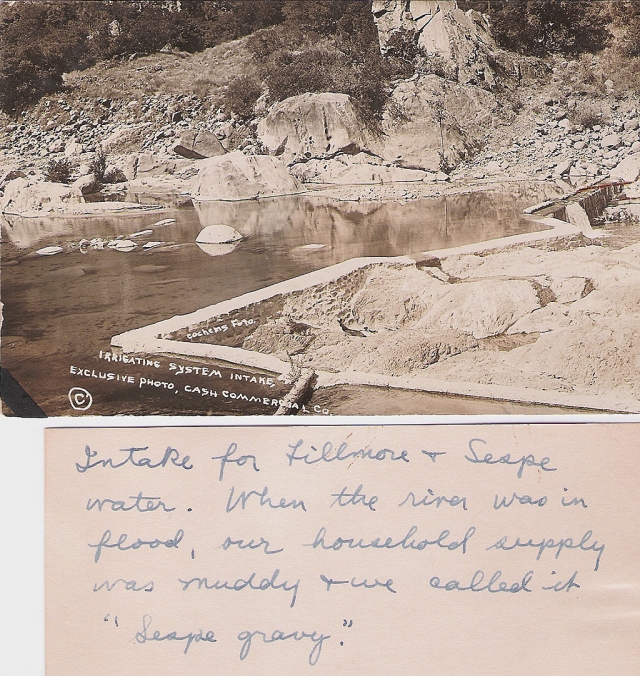 Cochems Foto.
IRRIGATING SYSTEM INTAKE,
EXCLUSIVE PHOTO, CASH COMMERCIAL CO.
C
Intake for Fillmore + Sespe
water. When the river was in
flood, our household supply
was muddy + we called it
"Sespe gravy."